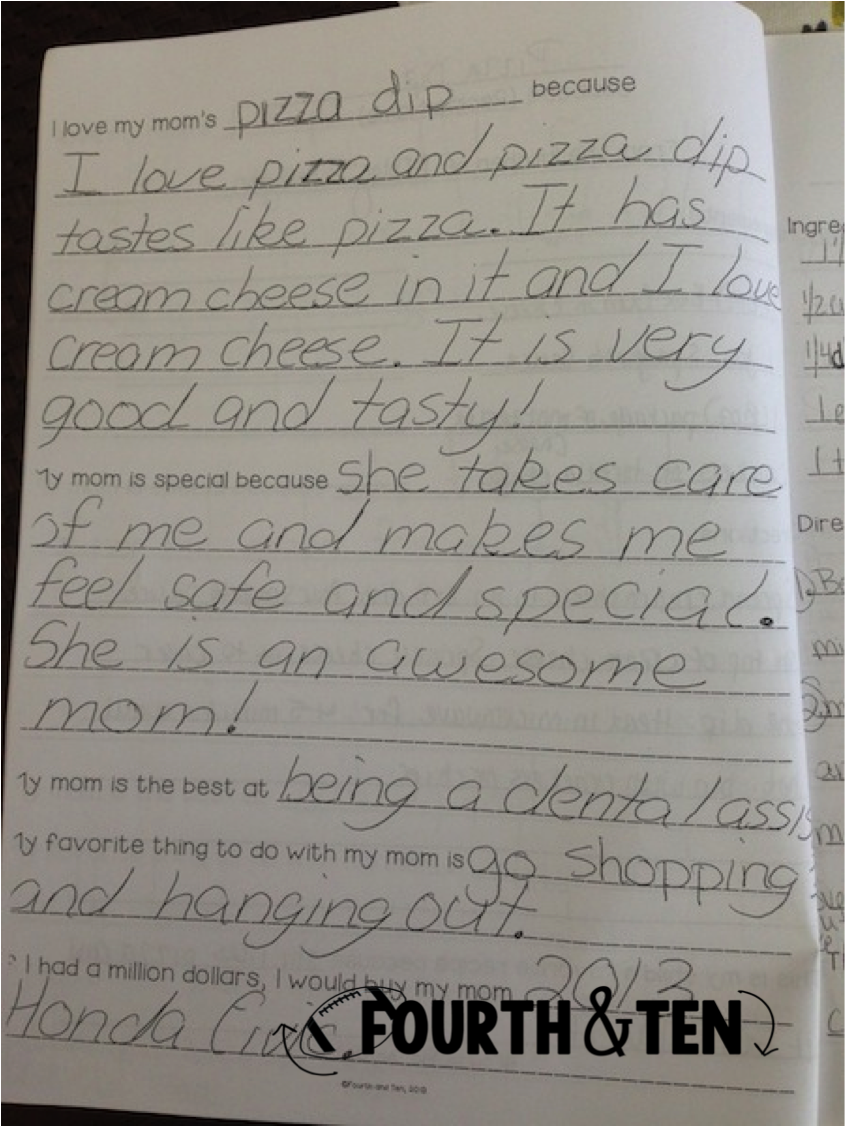 I love my mom's pizza dip because
I love pizza and pizza dip
tastes like pizza. It has
cream cheese in it and I love
cream cheese. It is very
good and tasty!
My mom is special because she takes care
of me and makes me
feel safe and special.
She is an awesome
mom!
My mom is the best at being a dental assis
My favorite thing to do with my mom is go shopping
and hanging out.
If I had a million dollars, I would buy my mom 2013
Honda Civic.
FOURTH & TEN
©Fourth and Ten, 2013
Ingre
1/2 cu
1/4
Dire